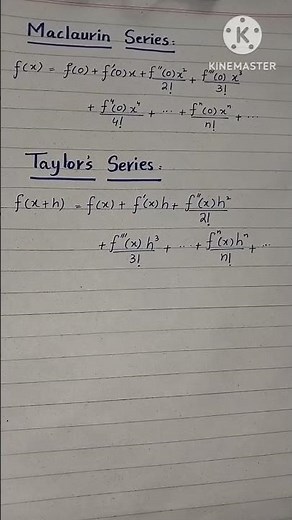 Maclaurin Series:
KINEMASTER
f(x) = f(0) + f'(0)x + f''(0)x²/2! + f'''(0)x³/3!
+ f''(0)x⁴/4! + ... + fⁿ(0)xⁿ/n! + ...
Taylor's Series:
f(x+h) = f(x) + f'(x)h + f''(x)h²/2!
+ f'''(x)h³/3! + ... + fⁿ(x)hⁿ/n! + ...